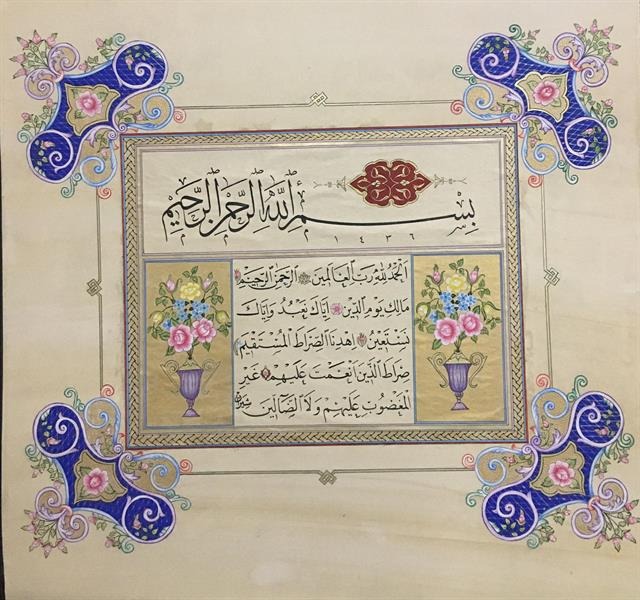 بِسْمِ اللَّهِ الرَّحْمَنِ الرَّحِيمِ
١٤٣٦
الحَمْدُ لِلَّهِ رَبِّ العَالَمِينَ الرَّحْمَنِ الرَّحِيمِ
مَالِكِ يَوْمِ الدِّينِ إِيَّاكَ نَعْبُدُ وَإِيَّاكَ
نَسْتَعِينُ اِهْدِنَا الصِّرَاطَ المُسْتَقِيمَ
صِرَاطَ الَّذِينَ أَنْعَمْتَ عَلَيْهِمْ غَيْرِ
المَغْضُوبِ عَلَيْهِمْ وَلَا الضَّالِّينَ